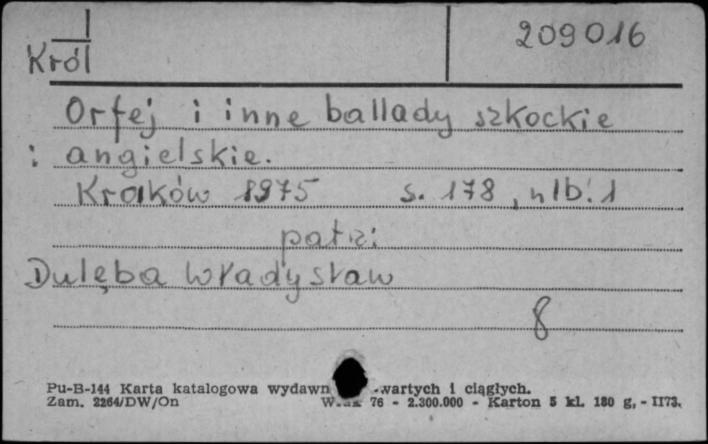 I
209016
Król
Orfej i inne ballady szkockie
i angielskie.
Kraków 1975 s. 178, nlb. 1
patrz:
Dulęba Władysław
8
Pu-B-144 Karta katalogowa wydawn wartych i ciągłych.
Zam. 2264/DW/On 76 - 2.300.000 - Karton 5 kl. 180 g, - II73.